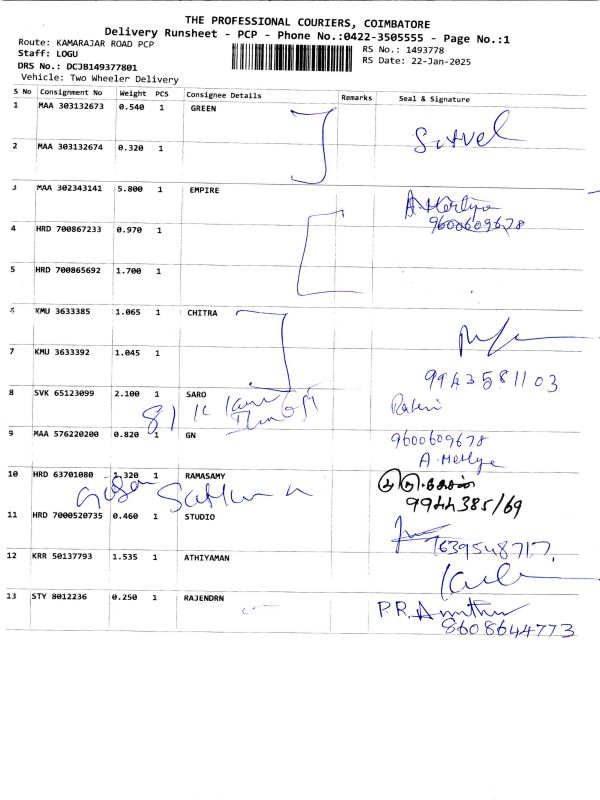 THE PROFESSIONAL COURIERS, COIMBATORE
Delivery Runsheet - PCP - Phone No.:0422-3505555 - Page No.:1
Route: KAMARAJAR ROAD PCP
RS No.: 1493778
Staff: LOGU
RS Date: 22-Jan-2025
DRS No.: DCJB149377801
Vehicle: Two Wheeler Delivery
S No Consignment No Weight PCS Consignee Details Remarks Seal & Signature
1 MAA 303132673 0.540 1 GREEN
2 MAA 303132674 0.320 1
3 MAA 302343141 5.800 1 EMPIRE
9600609678
4 HRD 700867233 0.970 1
5 HRD 700865692 1.700 1
6 KMU 3633385 1.065 1 CHITRA
7 KMU 3633392 1.045 1
9943581103
8 SVK 65123099 2.100 1 SARO
81 K
9 MAA 576220200 0.820 1 GN
9600609678
10 HRD 63701080 1.320 1 RAMASAMY
9944385169
11 HRD 7000520735 0.460 1 STUDIO
7639548717,
12 KRR 50137793 1.535 1 ATHIYAMAN
13 STY 8012236 0.250 1 RAJENDRN
P.R.
8608644773